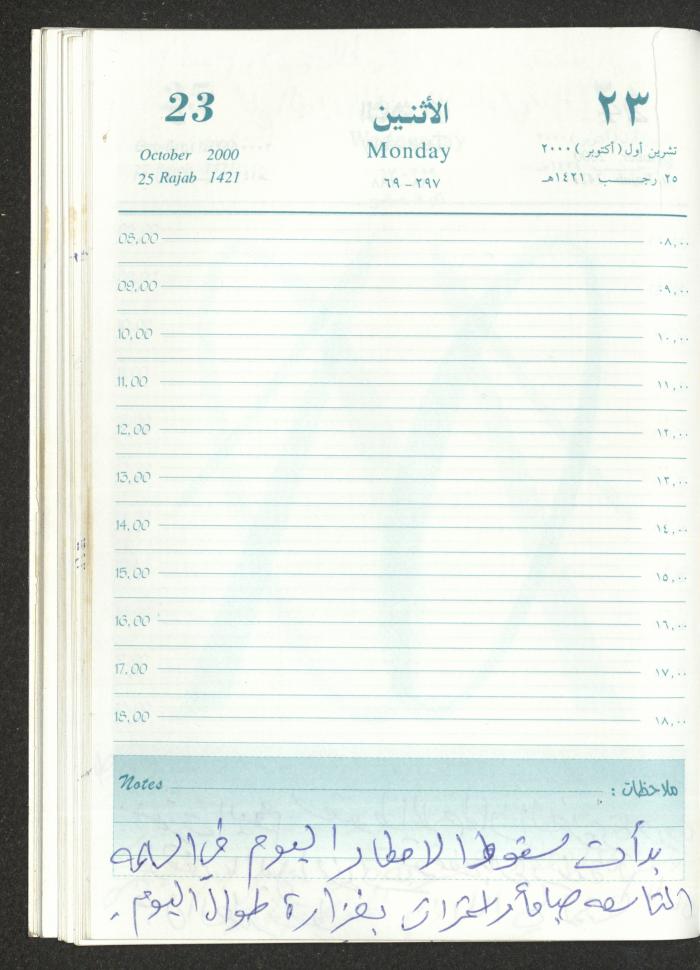 23 الأثنين ٢٣
October 2000 Monday تشرين أول (أكتوبر) ٢٠٠٠
25 Rajab 1421 ٢٩٧-٦٩ ٢٥ رجب ١٤٢١هـ
08,00 ٠٨,٠٠
09,00 ٠٩,٠٠
10,00 ١٠,٠٠
11,00 ١١,٠٠
12,00 ١٢,٠٠
13,00 ١٣,٠٠
14,00 ١٤,٠٠
15,00 ١٥,٠٠
16,00 ١٦,٠٠
17,00 ١٧,٠٠
18,00 ١٨,٠٠
Notes ملاحظات :
بدأت سقوط الامطار اليوم في الساعه
التاسعه صباحاً واستمرات بغزارة طوال اليوم.